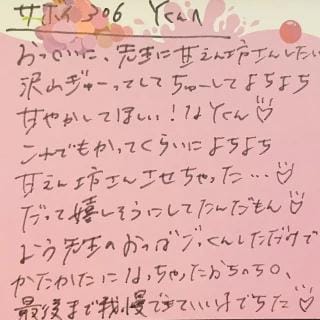 サホイ 306 Yくんへ
おっ に、先生に甘えん坊さんしたい
沢山ぎゅーってしてちゅーしてよちよち
甘やかしてほしい!なYくん♡
これでもかってくらいによちよち
甘えん坊さんさせちゃった…♡
だって嬉しそうにしてたんだもん♡
よう先生のおっぱ っくんしただけで
かたかたになっちゃったおちの
最後まで我慢できていい子でちた♡